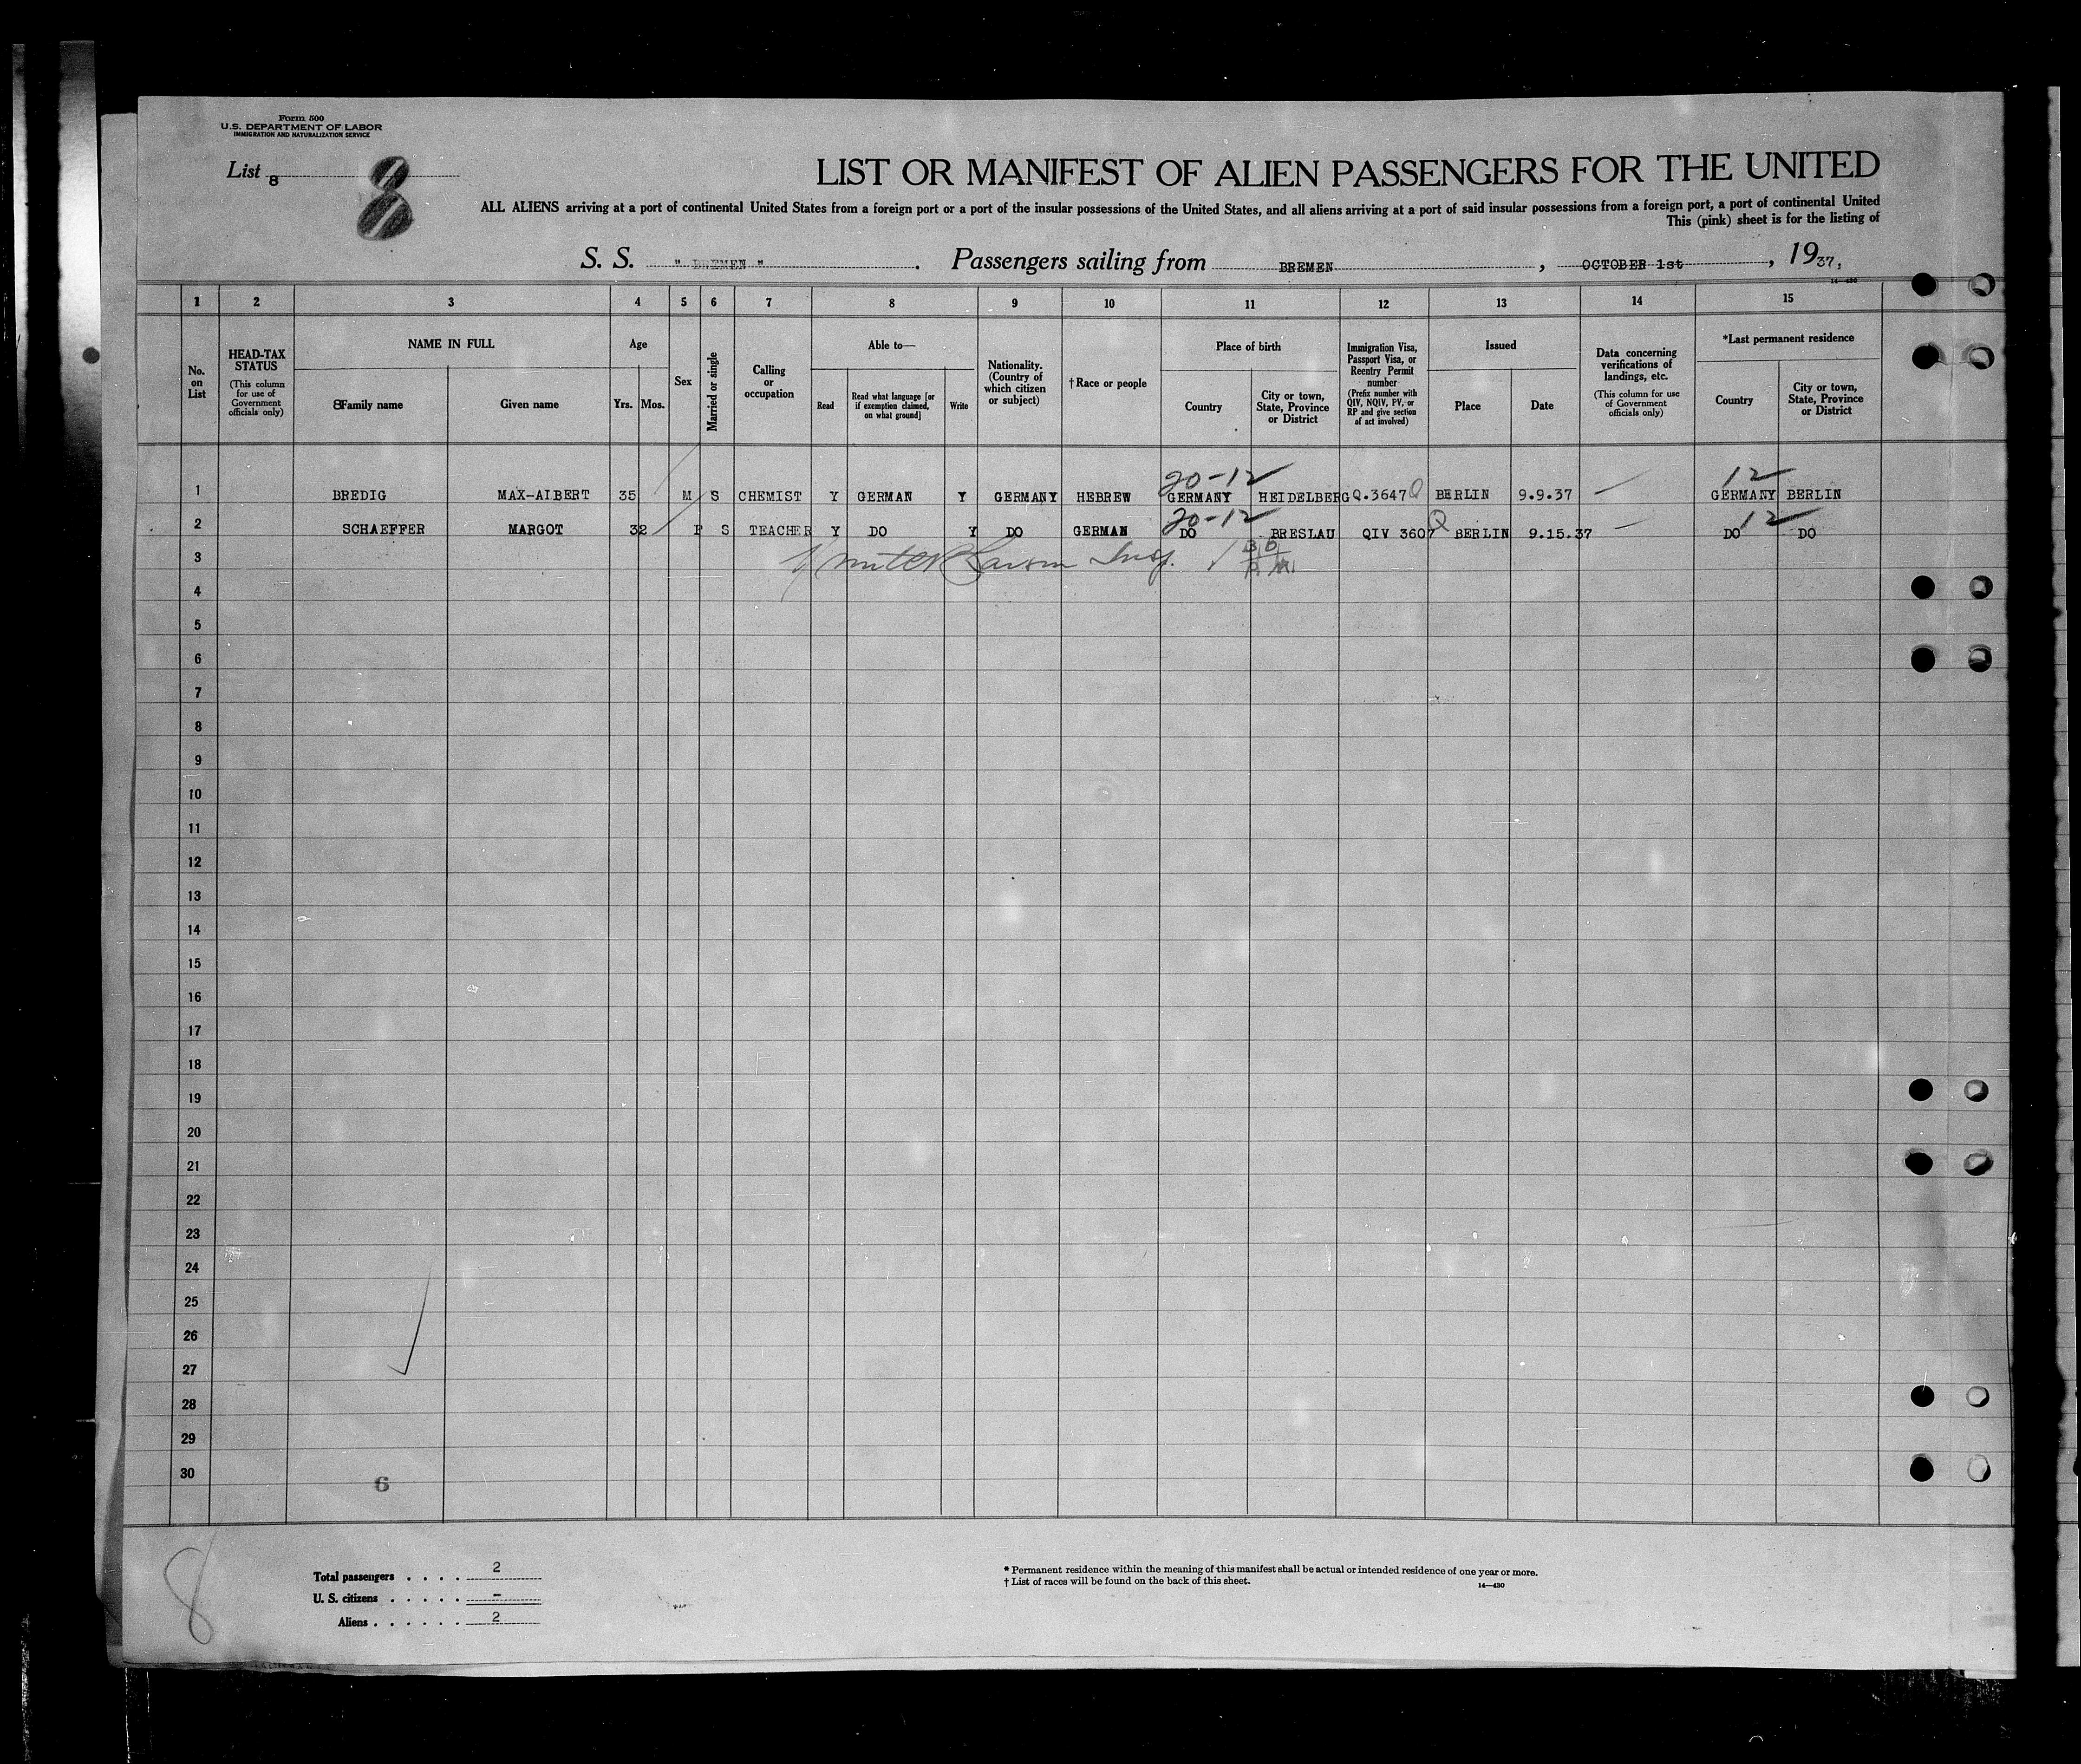 Form 500
U.S. DEPARTMENT OF LABOR
IMMIGRATION AND NATURALIZATION SERVICE
List 8
8
LIST OR MANIFEST OF ALIEN PASSENGERS FOR THE UNITED
ALL ALIENS arriving at a port of continental United States from a foreign port or a port of the insular possessions of the United States, and all aliens arriving at a port of said insular possessions from a foreign port, a port of continental United
This (pink) sheet is for the listing of
S. S. " BREMEN ". Passengers sailing from BREMEN, OCTOBER 1st, 1937,
14—430
1 2 3 4 5 6 7 8 9 10 11 12 13 14 15
No. on List
HEAD-TAX STATUS (This column for use of Government officials only)
NAME IN FULL
Family name
Given name
Age
Yrs. Mos.
Sex
Married or single
Calling or occupation
Able to—
Read
Read what language [or if exemption claimed, on what ground]
Write
Nationality. (Country of which citizen or subject)
†Race or people
Place of birth
Country
City or town, State, Province or District
Immigration Visa, Passport Visa, or Reentry Permit number (Prefix number with QIV, NQIV, PV, or RP and give section of act involved)
Issued
Place
Date
Data concerning verifications of landings, etc. (This column for use of Government officials only)
*Last permanent residence
Country
City or town, State, Province or District
20-12 12
1 BREDIG MAX-ALBERT 35 M S CHEMIST Y GERMAN Y GERMANY HEBREW GERMANY HEIDELBERG Q.3647 Q BERLIN 9.9.37 — GERMANY BERLIN
20-12 12
2 SCHAEFFER MARGOT 32 F S TEACHER Y DO Y DO GERMAN DO BRESLAU QIV 3607 Q BERLIN 9.15.37 — DO DO
3 Insp.
4
5
6
7
8
9
10
11
12
13
14
15
16
17
18
19
20
21
22
23
24
25
26
27
28
29
30
6
8
Total passengers . . . . 2
U. S. citizens . . . . . –
Aliens . . . . . . 2
* Permanent residence within the meaning of this manifest shall be actual or intended residence of one year or more.
† List of races will be found on the back of this sheet.
14—430